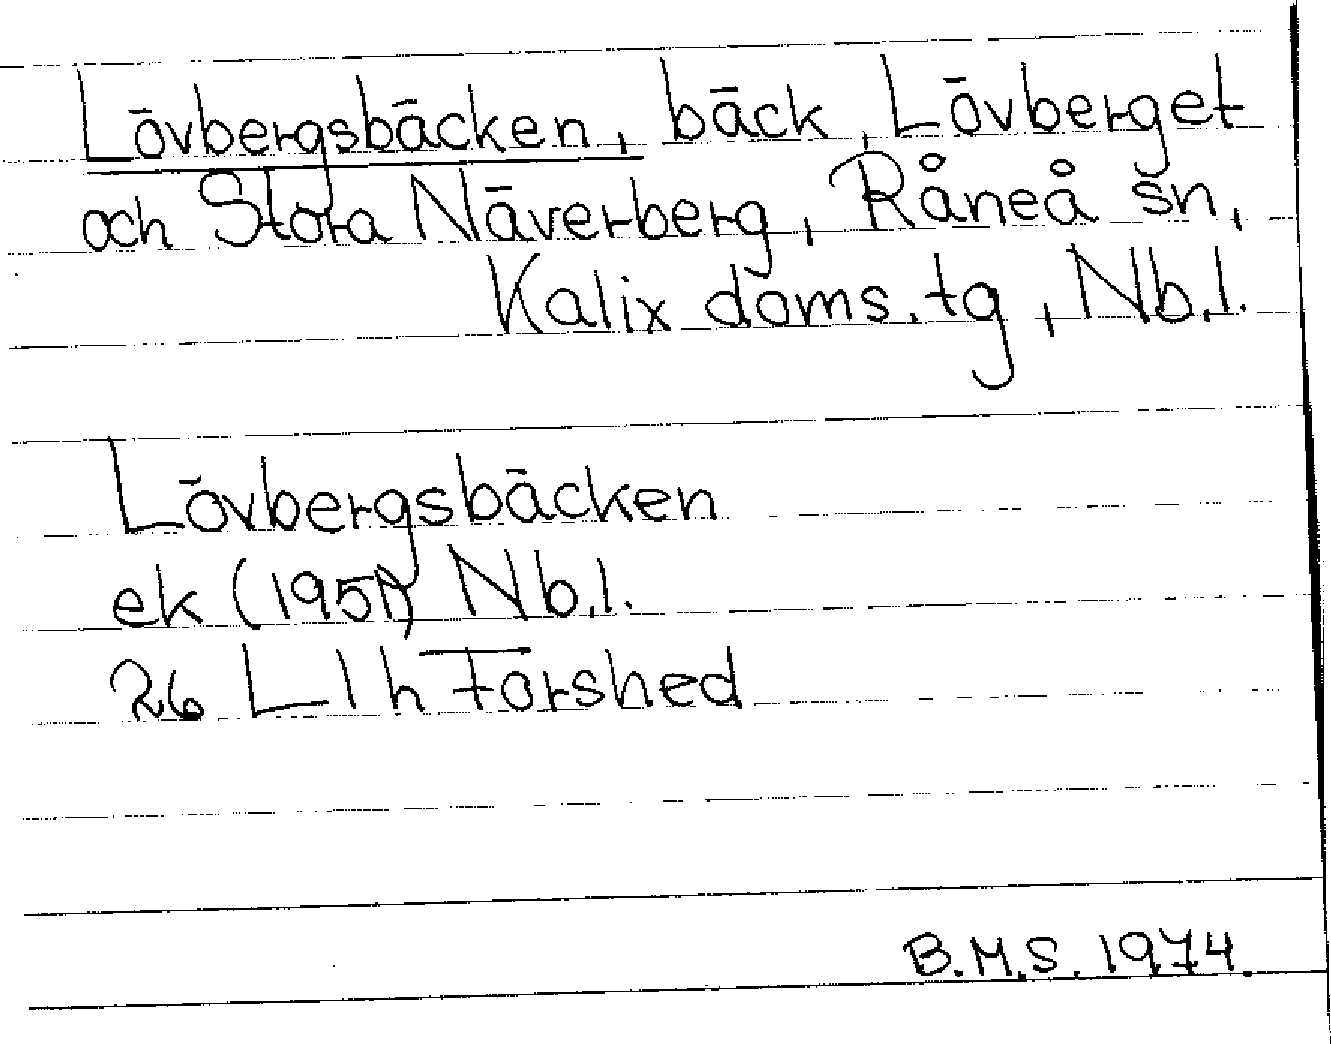 Lövbergsbäcken, bäck, Lövberget
och Stora Näverberg, Råneå sn,
Kalix doms.tg, Nb.l.
Lövbergsbäcken
ek (1951) Nb.l.
26 L l h Forshed
B.M.S. 1974.